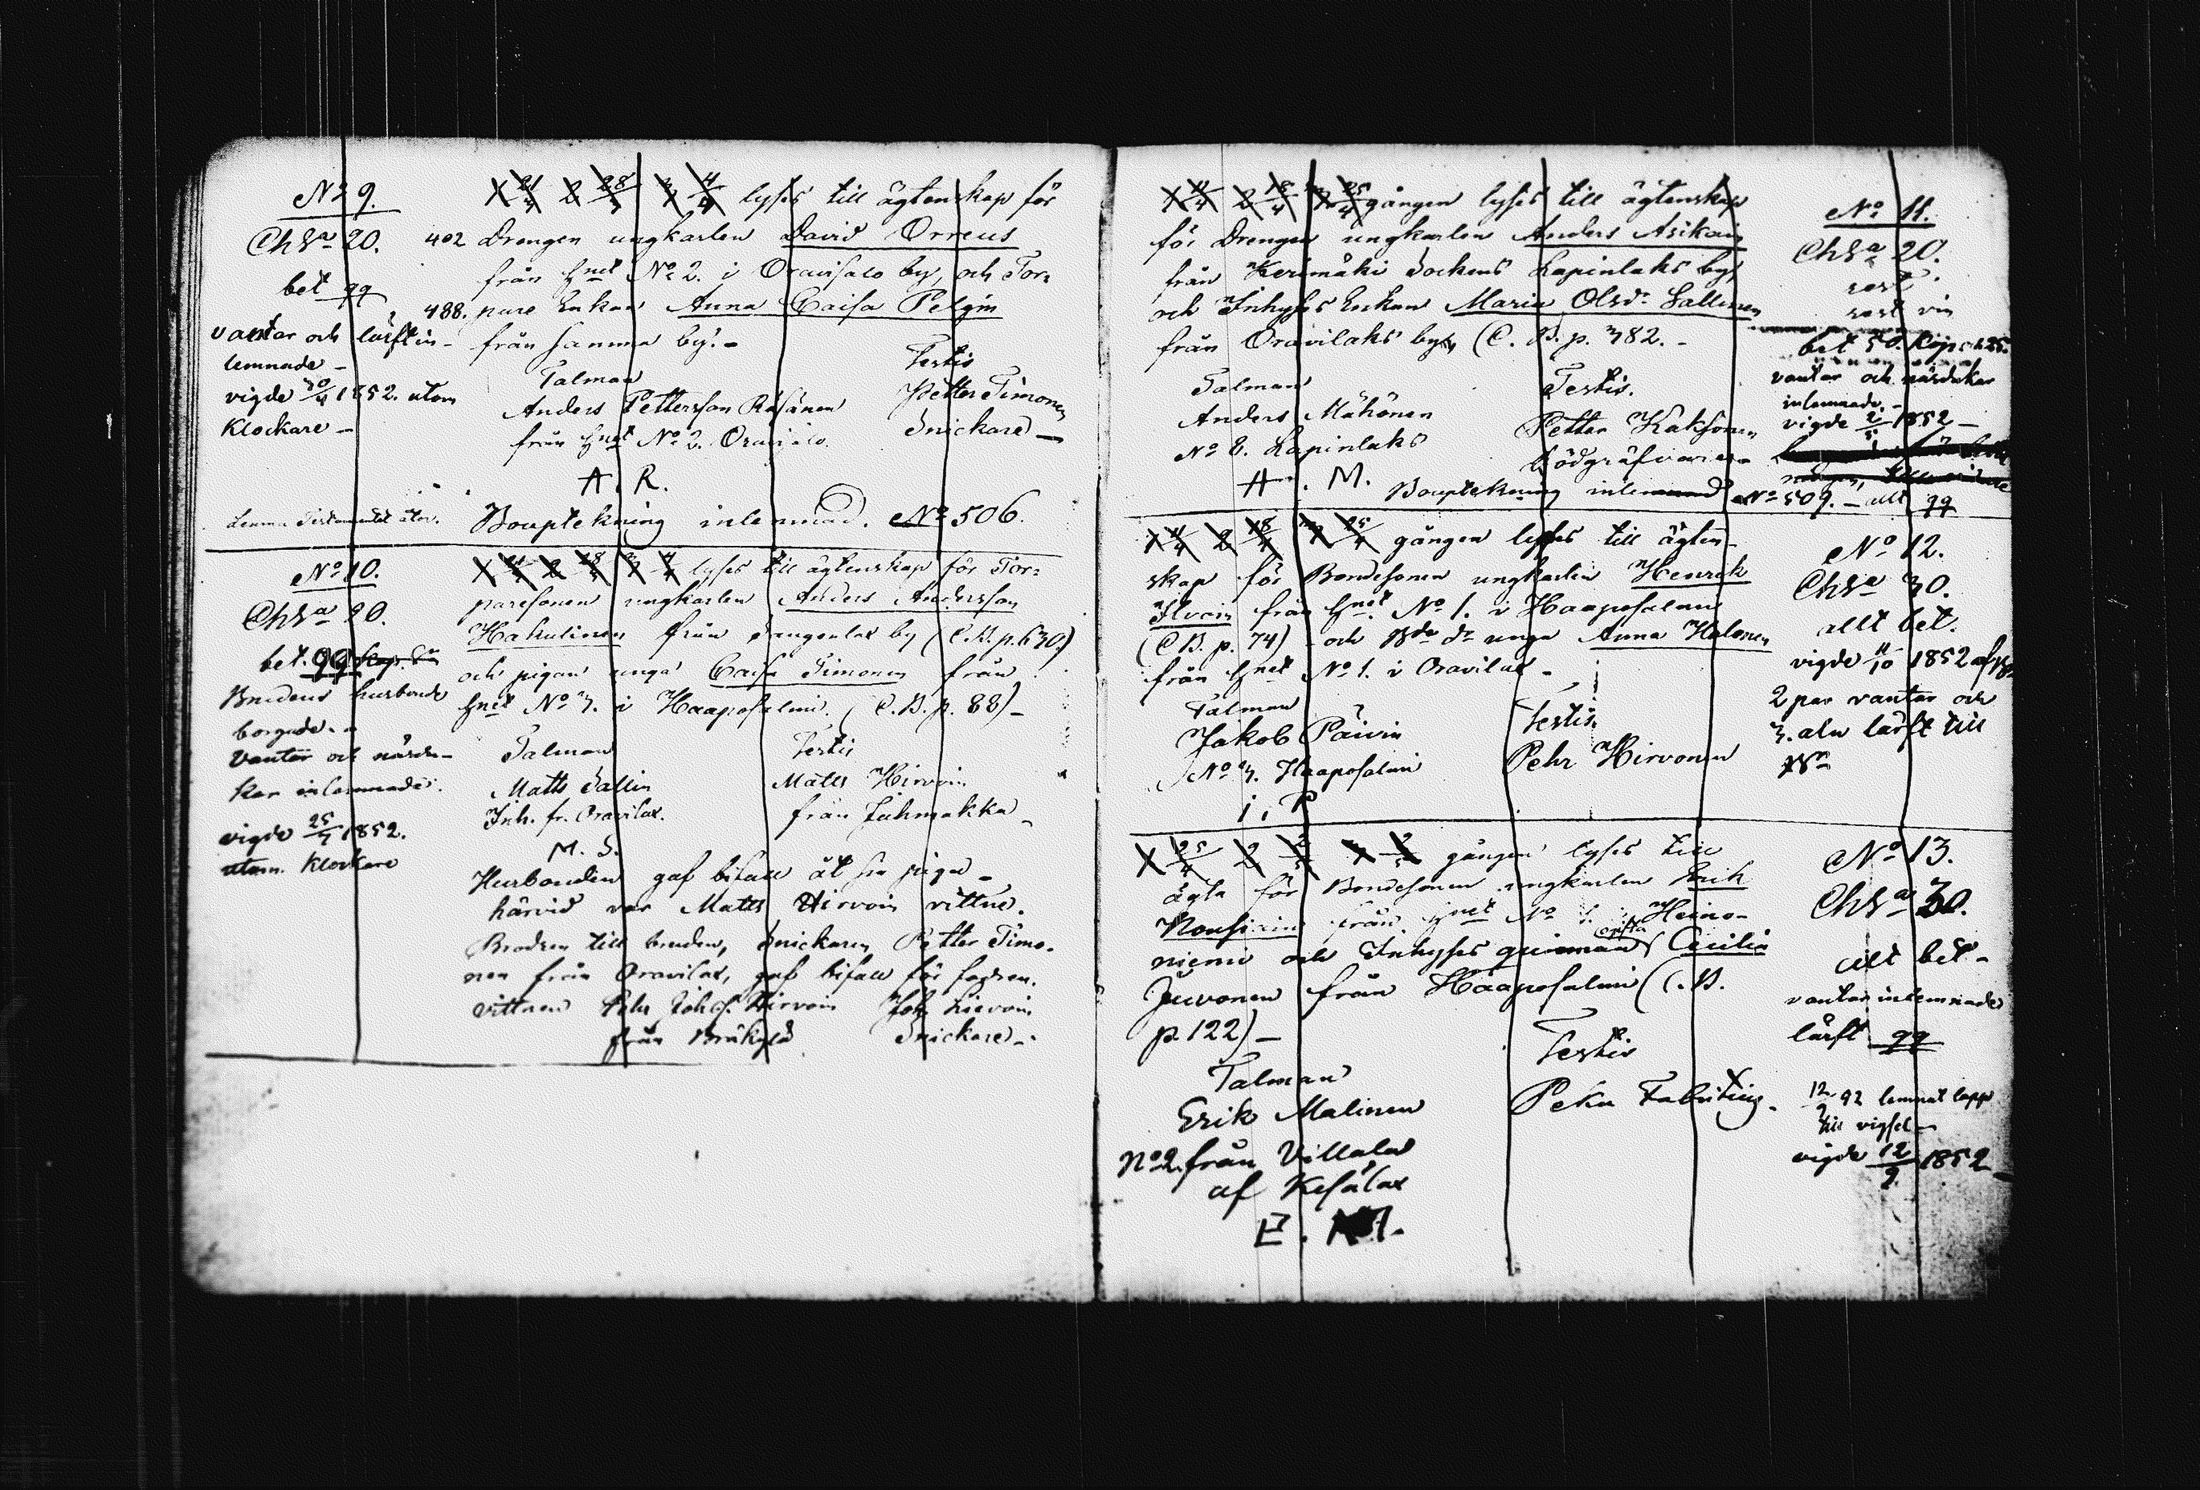 No 9.
Chsa 20.
bet qq
vantar och lärft in-
lemnade -
vigde 30/4 1852. utom
Klockare -
1 21/4 2 28/ 3 4/4 lyses till ägtenskap för
402 Drengen ungkarlen David Orreus
från hnet No 2. i Oravisalo by, och Tor=
488. pare Enkan Anna Caisa Pelgin
från samma by. -
Talman
Anders Pettersson Räsänen
från hnet No 2. Oravisalo.
Testis
Petter Timonen
Snickare -
A. R.
Bouptekning inlemnad. No 506.
No 10.
Chsa 20.
bet. qq
Brudens husbonde
borgade. -
Vantar och näsdu-
kar inlemnade.
vigde 25/4 1852.
utom. Klockare
lyses till ägtenskap för Tor=
paresonen ungkarlen Anders Andersson
Hakulinen från Sangenlax by (C.B.p.630.)
och pigan unga Caisa Timonen från
hnet No 3. i Haaposalmi. (C.B.p. 88) -
Talman
Matts Sallin
Inh. fr. Oravilax.
Testis
Matts Hirvoin
från Juhmakka -
M. S.
Husbonden gaf bifall åt sin piga -
härvid var Matts Hirvoin vittne.
Brodren till bruden, Snickaren Petter Timo-
nen från Oravilax, gaf bifall för fadren.
vittnen Pehr Johs. Hirvoin
från Bräkylä
Snickare -
1 11/4 2 18/4 3 25/4 gången lyses till ägtenskap
för Drengen ungkarlen Anders Asikain
från Kerimäki Sockens Lapinlaks by,
och Inhyses Enkan Maria Olsdr Sallinen
från Oravilaks by (C. B. p. 382. -
Talman
Anders Mähönen
No 8. Lapinlaks
Testis.
Petter Kaksonen
Dödgräfvare
A. M.
Bouptekning inlemnad No 509. - allt qq
No 11.
Chsa 20.
rest
rest vin
bet 50. Kop
vantar och näsdukar
inlemnade. -
vigde 2/5 1852 -
1 11/4 2 18/4 3 25/4 gången lyses till ägten-
skap för Bondesonen ungkarlen Henrik
Ilvoin från hnet No 1. i Haaposalmi
(C B. p. 74) - och Bde dr unga Anna Halonen
från hnet No 1. i Oravilax -
Talman
Jakob Päivin
No 3. Haaposalmi
Testis.
Pehr Hirvonen
J. P
No 12.
Chsa 30.
allt bet.
vigde 11/10 1852
2 par vantar och
3. aln lärft till
1 25/4 2 2/5 gången lyses till
ägta för Bondesonen ungkarlen Erik
från hnet No 1. Heino-
niemi och Inhyses qvinnan Cecilia
Juvonen från Haaposalmi (C.B.
p. 122) -
Talman
Erik Malinen
No 2. från Villala
af Kesälax
Testis
Peka Fabritius.
E. M.
No 13.
Chsa 30.
allt bet -
vantar inlemnade
lärft qq
lemnat lapp
till vigsel -
vigde 12/9 1852